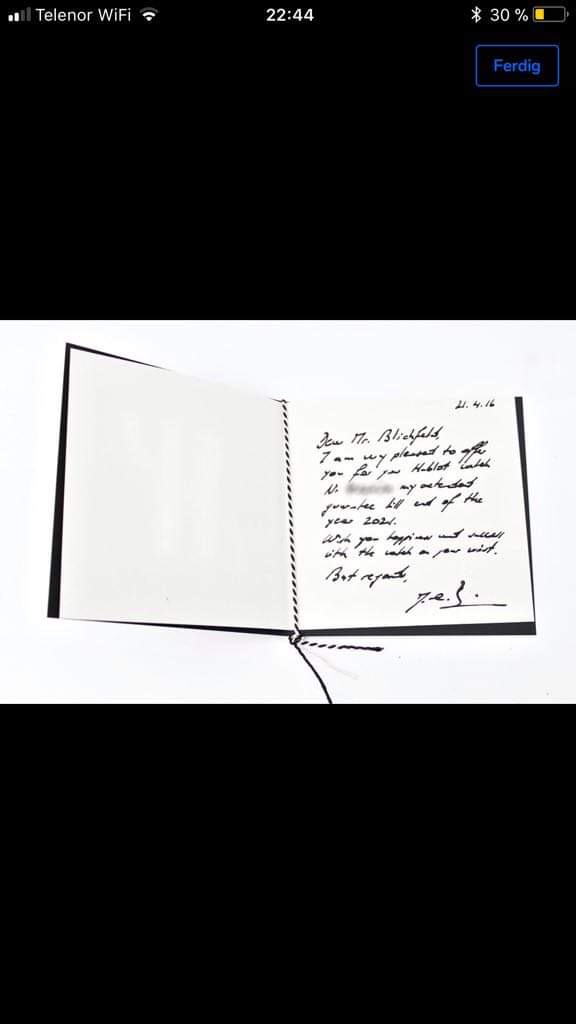 Telenor WiFi
22:44
30 %
Ferdig
21.4.16
Dear Mr. Blichfeldt,
I am very pleased to offer
you for your Hublot watch
Nr. my extended
guarantee till end of the
year 2021.
Wish you happiness and success
with the watch on your wrist.
Best regards,